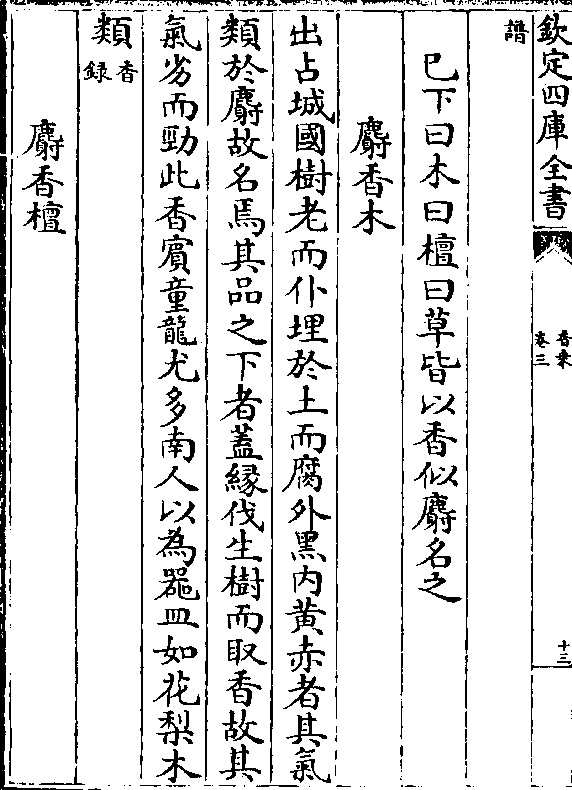 欽定四庫全書
香乘
卷三
十三
譜
已下曰木曰檀曰草皆以香似麝名之
麝香木
出占城國樹老而仆埋於土而腐外黑内黄赤者其氣
類於麝故名焉其品之下者蓋縁伐生樹而取香故其
氣劣而勁此香賔童龍尤多南人以為器皿如花梨木
類香録
麝香檀